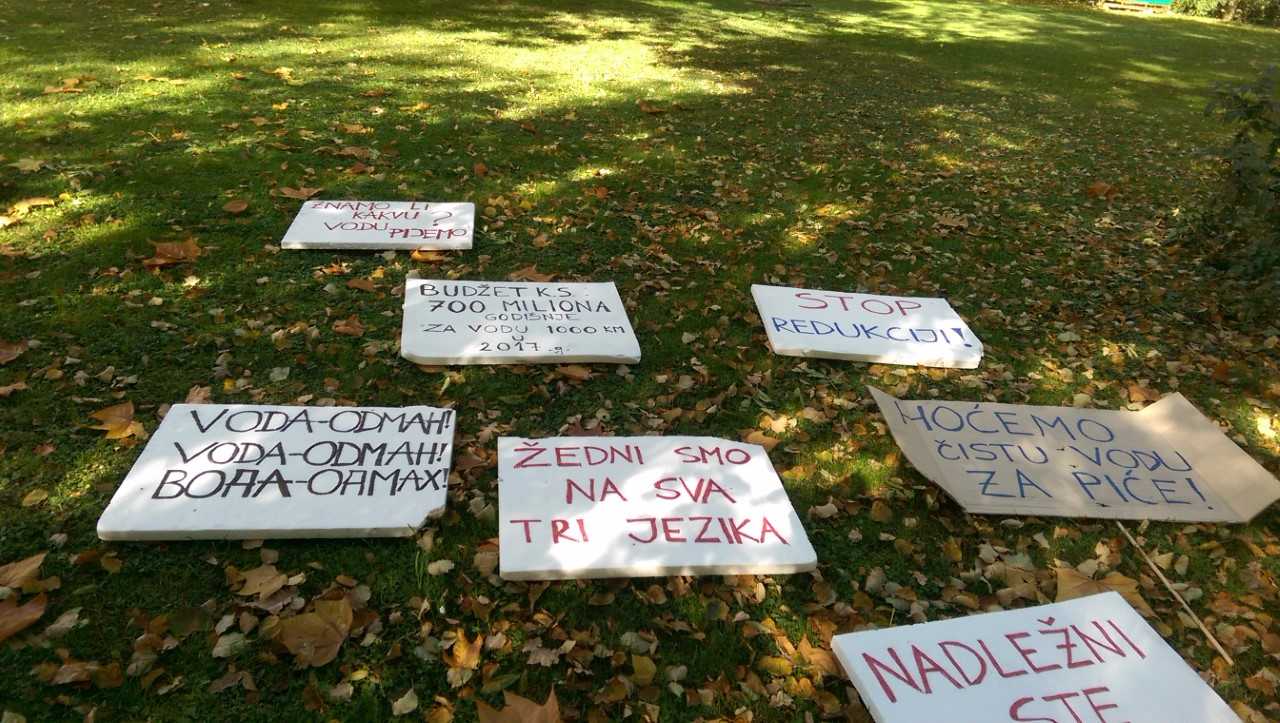 ZNAMO LI
KAKVU ?
VODU PIJEMO
BUDŽET K.S.
700 MILIONA
GODIŠNJE
ZA VODU 1000 KM
U
2017.g.
STOP
REDUKCIJI!
VODA-ODMAH!
VODA-ODMAH!
ВОДА-ОДМАХ!
ŽEDNI SMO
NA SVA
TRI JEZIKA
HOĆEMO
ČISTU VODU
ZA PIĆE!
NADLEŽNI
STE